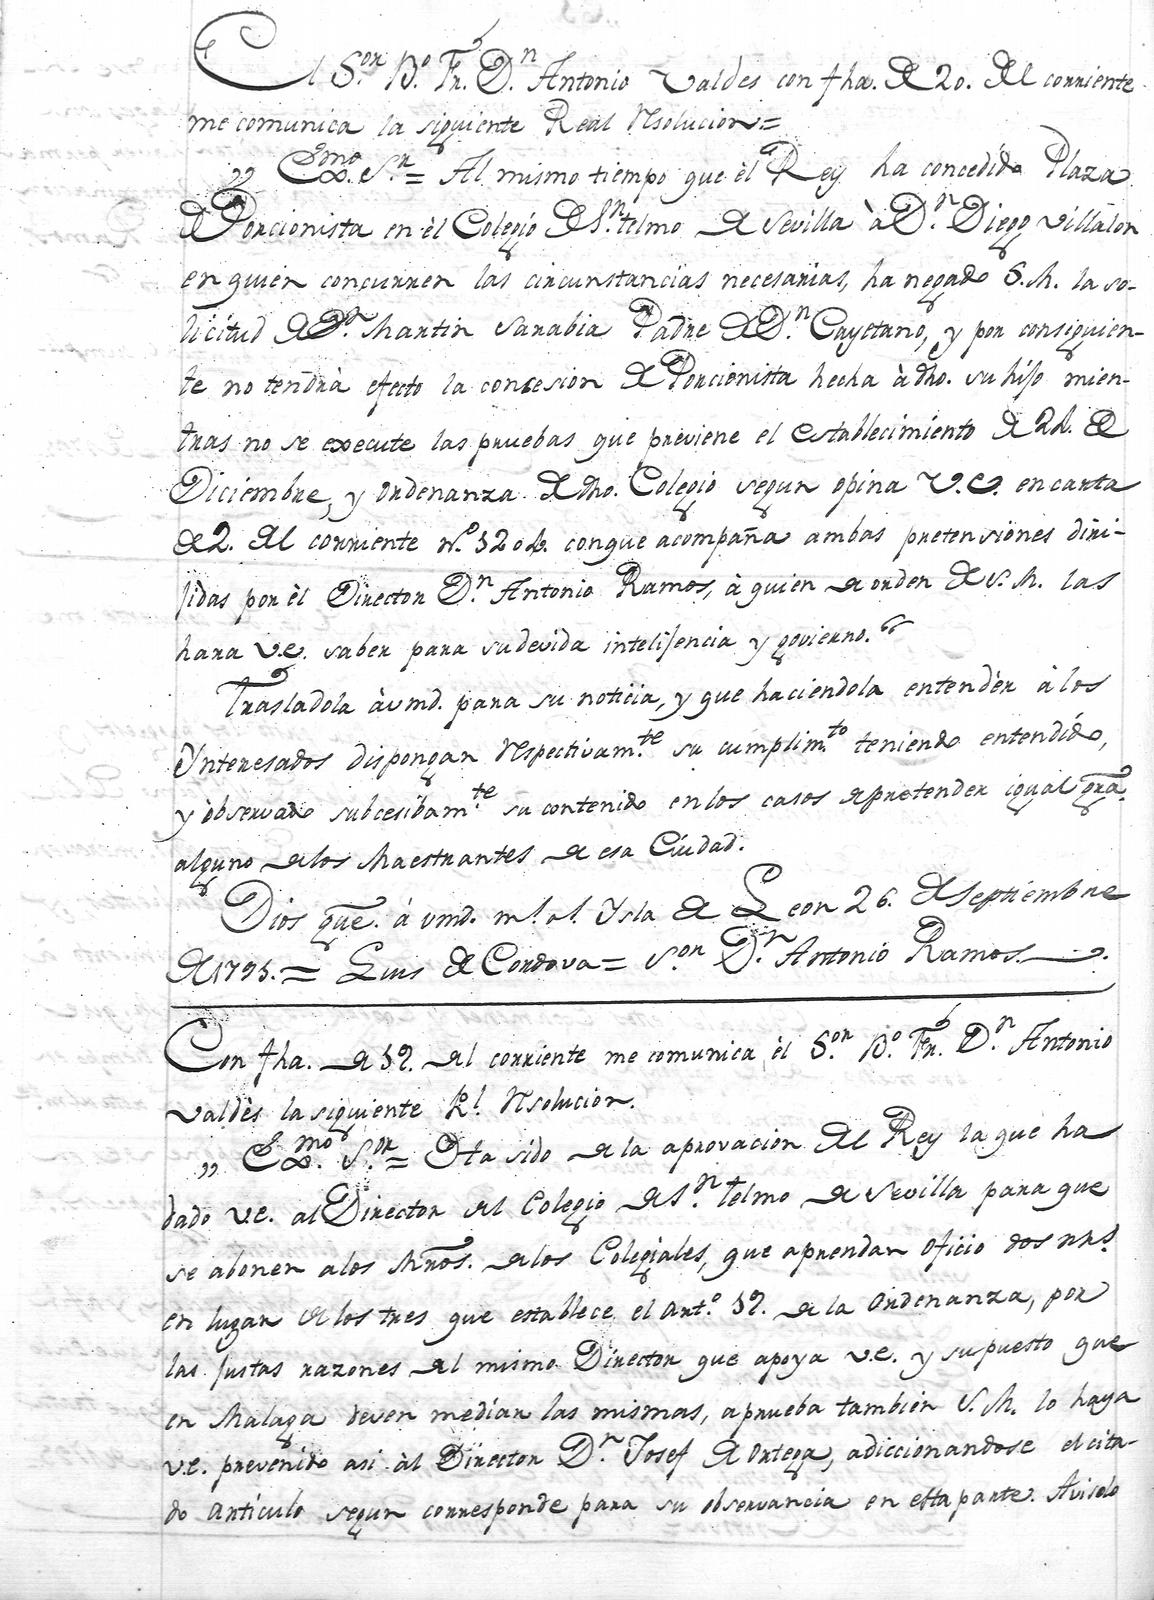 El S.or B.o Fr. D.n Antonio Valdes con fha. de 20. del corriente
me comunica la siguiente Real Resolucion=
,, Exmo. S.r = Al mismo tiempo que èl Rey ha concedido Plaza
de Porcionista en èl Colegio de S.n telmo de Sevilla à D.n Diego Villalon
en quien concurren las circunstancias necesarias, ha negado S. M. la so-
licitud de D.n Martin Sanabia Padre de D.n Cayetano, y por consiguien-
te no tendrà efecto la concesion de Porcionista hecha à dho. su hijo mien-
tras no se execute las pruebas que previene el establecimiento de 24. de
Diciembre, y ordenanza de dho. Colegio segun opina V.E. en carta
de 2. del corriente n.o 3204. con que acompaña ambas pretensiones diri-
jidas por èl Director D.n Antonio Ramos, à quien de orden de S. M. las
hara V.E. saber para su devida intelijencia y govierno."
Trasladola à vmd. para su noticia, y que haciendola entendèr à los
Ynteresados dispongan respectivam.te su cumplim.to teniendo entendido,
y òbservado subcesibam.te su contenido en los casos de pretender igual gra.
alguno de los Maestrantes de esa Ciudad.
Dios gue. à vmd. m.s a.s Ysla de Leon 26. de Septiembre
de 1795. = Luis de Cordova = S.or D.n Antonio Ramos.
Con fha. de 19. del corriente me comunica èl S.or B.o Fr. D.n Antonio
Valdès la siguiente R.l Resolucion.
,, Exmo. S.or = Ha sido de la aprovacion del Rey la que ha
dado V.E. al Director del Colegio de S.n telmo de Sevilla para que
se abonen a los Mros. de los Colegiales, que aprendan oficio dos rr.s
en lugar de los tres que establece el art.o 19. de la Ordenanza, por
las justas razones del mismo Director que apoya V.E. y supuesto que
en Malaga deven mediar las mismas, aprueba tambien S. M. lo haya
V.E. prevenido asi àl Director D.n Josef de Ortega, adiccionandose el cita-
do articulo segun corresponde para su observancia en esta parte. Aviselo